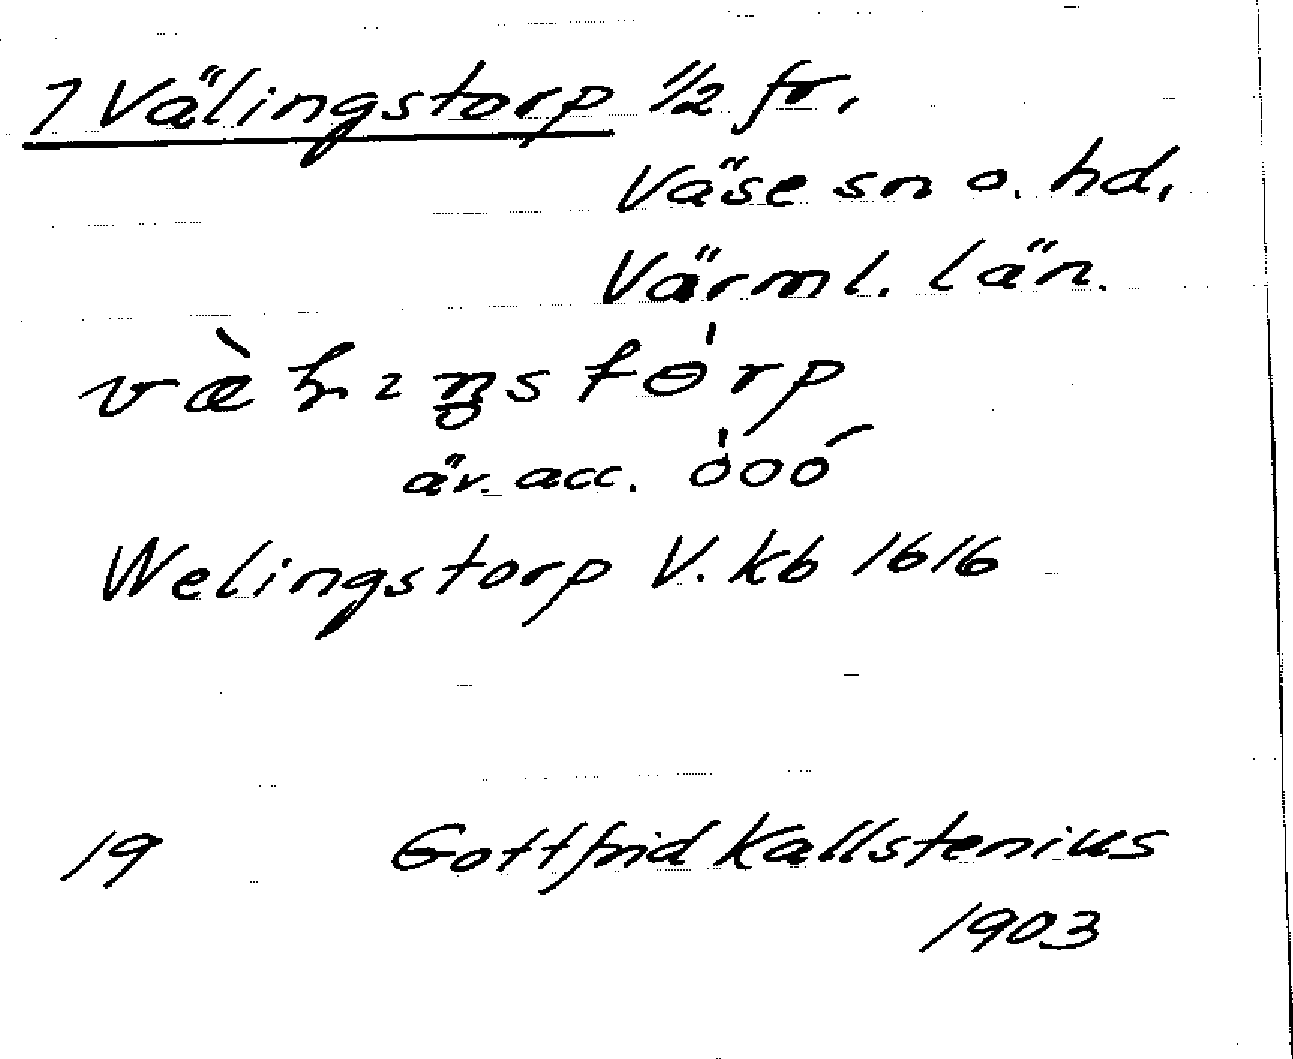 7 Välingstorp 1/2 fr.
Väse sn o. hd.
Värml. län.
äv. acc. òoó
Welingstorp V. kb 1616
19 Gottfrid Kallstenius
1903